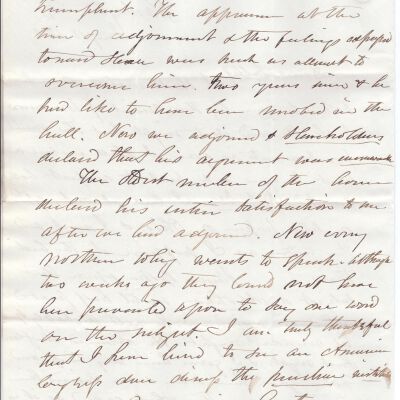 triumphant. The appearance at the
time of adjournment & the feelings expressed
toward Slave was such as almost to
overcome him. Two years since & he
had like to have been mobbed in the
hall. Now we adjourned & Slaveholders
declared that his argument was
The oldest member of the house
declared his entire satisfaction to me
after we had adjourned. Now every
northern whig wants to speak. although
two weeks ago they could not have
been prevailed upon to say one word
on the subject. I am truly thankful
that I have lived to see an American
Congress dare discuss the peculiar institution